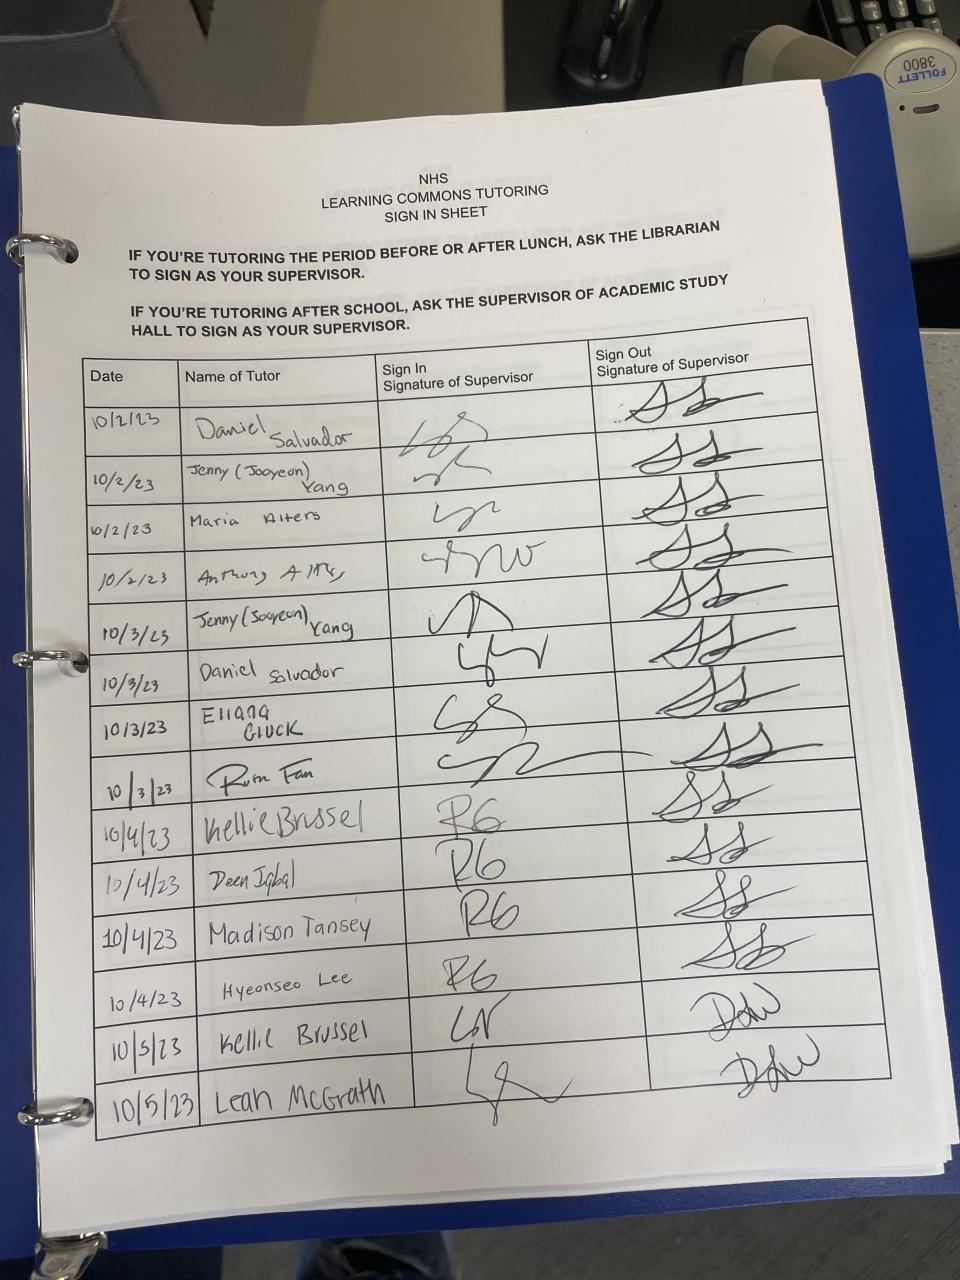 FOLLETT
3800
NHS
LEARNING COMMONS TUTORING
SIGN IN SHEET
IF YOU'RE TUTORING THE PERIOD BEFORE OR AFTER LUNCH, ASK THE LIBRARIAN
TO SIGN AS YOUR SUPERVISOR.
IF YOU'RE TUTORING AFTER SCHOOL, ASK THE SUPERVISOR OF ACADEMIC STUDY
HALL TO SIGN AS YOUR SUPERVISOR.
Date Name of Tutor Sign In Signature of Supervisor Sign Out Signature of Supervisor
10/2/23 Daniel Salvador
10/2/23 Jenny (Jooyeon) Yang
10/2/23 Maria Alters
10/2/23 Anthony
10/3/23 Jenny (Jooyeon) Yang
10/3/23 Daniel Salvador
10/3/23 Eliana Gluck
10/3/23 Fan
10/4/23 Kellie Brussel RG SS
10/4/23 Deen Iqbal RG SS
10/4/23 Madison Tansey RG SS
10/4/23 Hyeonseo Lee RG SS
10/5/23 Kellie Brussel
10/5/23 Leah McGrath